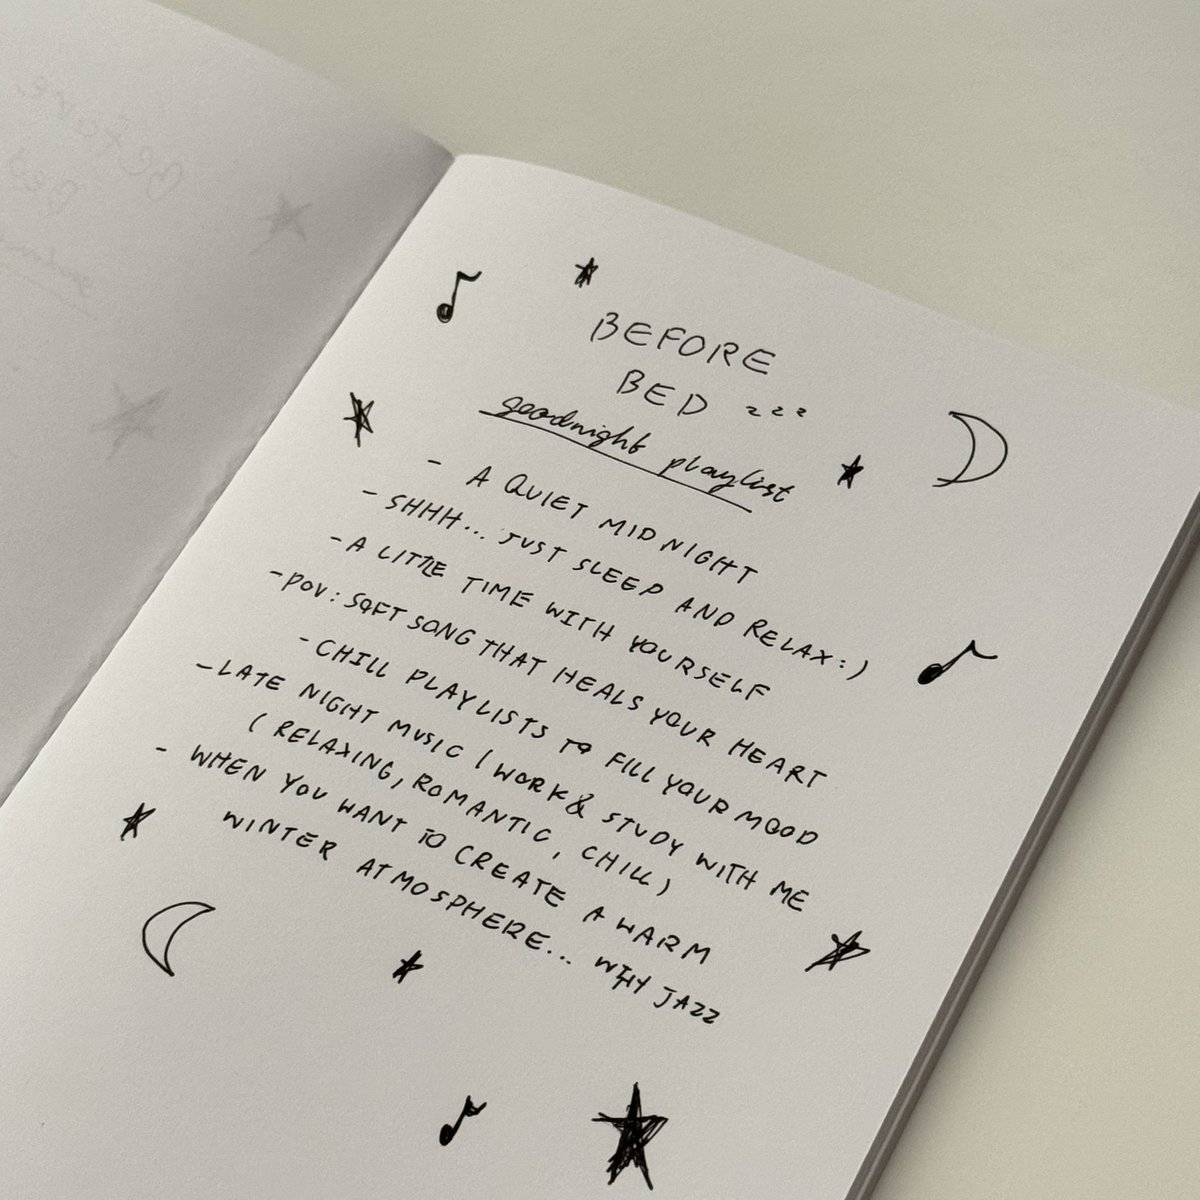 BEFORE
BED zzz
goodnight playlist
- A QUIET MIDNIGHT
- SHHH... JUST SLEEP AND RELAX:)
- A LITTLE TIME WITH YOURSELF
- POV: SOFT SONG THAT HEALS YOUR HEART
- CHILL PLAYLISTS TO FILL YOUR MOOD
- LATE NIGHT MUSIC | WORK & STUDY WITH ME
( RELAXING, ROMANTIC, CHILL)
- WHEN YOU WANT TO CREATE A WARM
WINTER ATMOSPHERE... WHY JAZZ